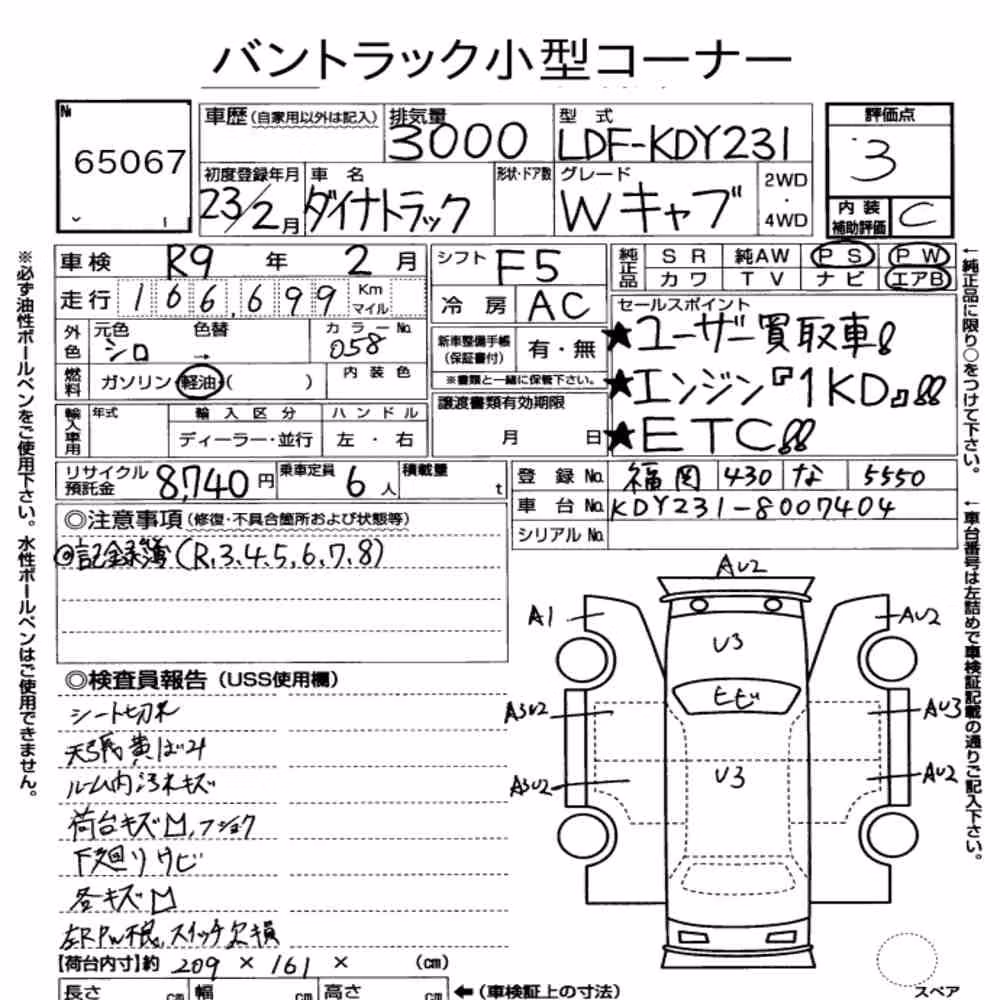 バントラック小型コーナー
№
65067
車歴(自家用以外は記入)
排気量
3000
型 式
LDF-KDY231
評価点
3
内装
補助評価
C
初度登録年月
23/2月
車 名
ダイナトラック
形状・ドア数
グレード
Wキャブ
2WD
・
4WD
車検 R9 年 2 月
走行 166,699 Km
マイル
シフト F5
冷 房 AC
純正品
S R 純AW P S P W
カ ワ T V ナ ビ エアB
外色
元色 色替
シロ →
カラーNo.
058
燃料
ガソリン・軽油・( )
内 装 色
新車整備手帳
(保証書付)
有・無
※書類と一緒に保管下さい。
セールスポイント
★ユーザー買取車!
★エンジン『1KD』!!
★ETC!!
輸入車用
年式
輸 入 区 分
ディーラー・並行
ハ ン ド ル
左 ・ 右
譲渡書類有効期限
月 日
リサイクル
預託金
8,740 円
乗車定員 6 人
積載量 t
登 録 No. 福岡 430 な 5550
車 台 No. KDY231-8007404
シリアル No.
◎注意事項(修復・不具合箇所および状態等)
◎記録簿(R,3,4,5,6,7,8)
◎検査員報告(USS使用欄)
シート切れ
天張黄ばみ
ルーム内汚れキズ
荷台キズ凹,フショク
下廻りサビ
各キズ凹
左RPW不良,スイッチ欠損
【荷台内寸】約 209 × 161 × (cm)
長さ cm 幅 cm 高さ cm ←(車検証上の寸法)
AU2
A1
AU2
U3
ヒビ
A3U2
AU3
U3
A3U2
AU2
スペア
※必ず油性ボールペンをご使用下さい。水性ボールペンはご使用できません。
←純正品に限り○をつけて下さい。
←車台番号は左詰めで車検証記載の通りご記入下さい。